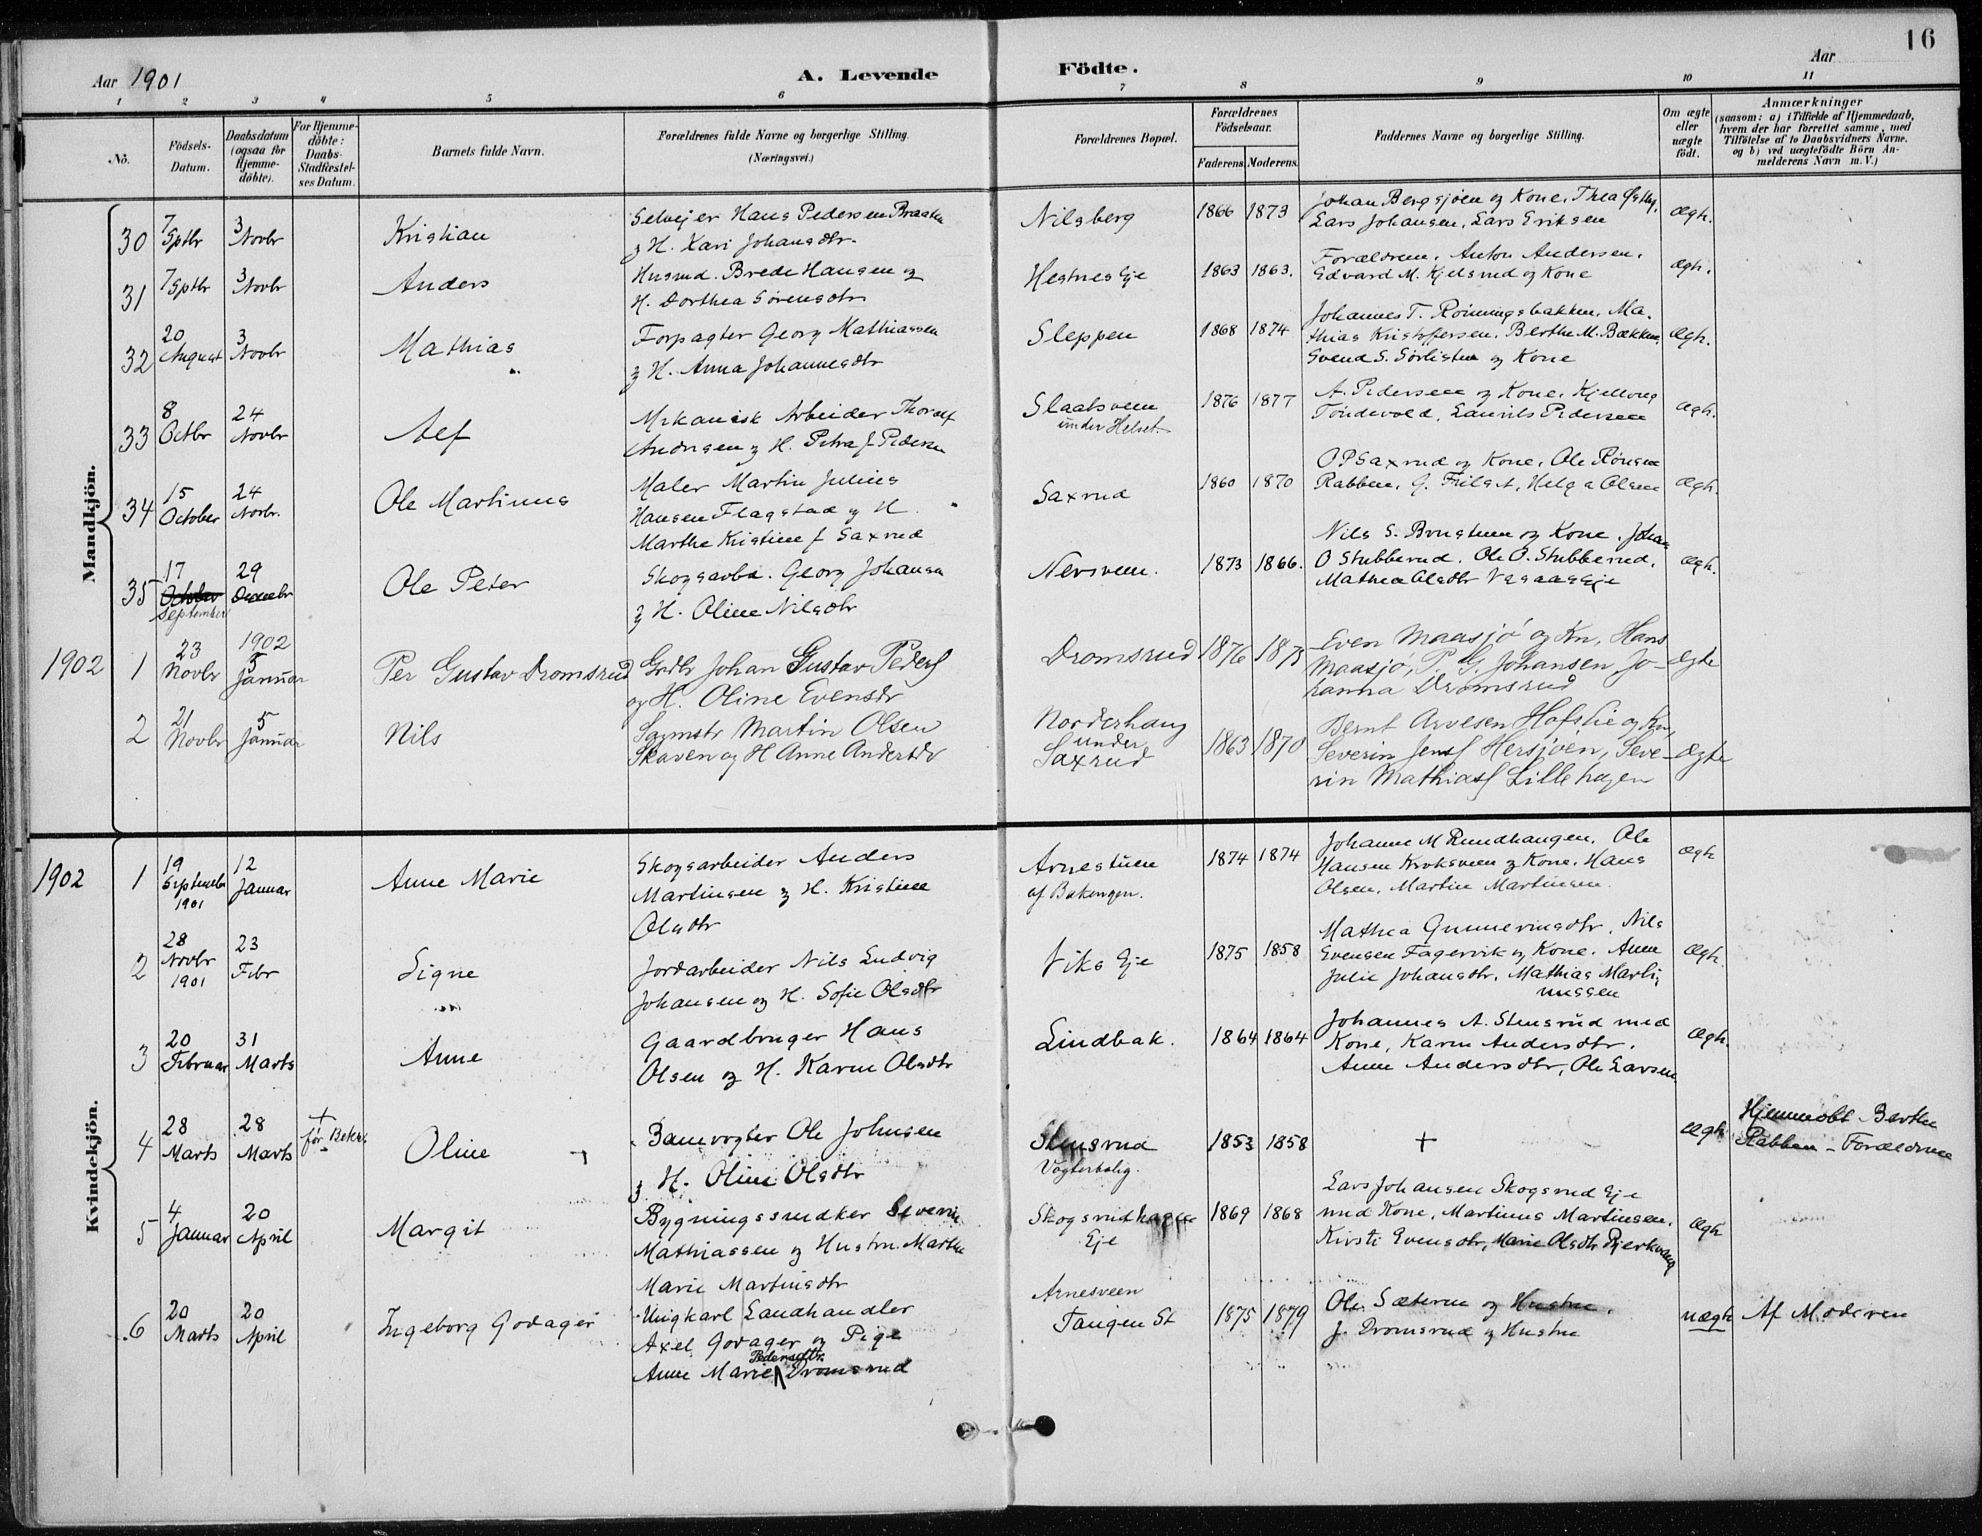 16
Aar 1901
A. Levende
Födte.
Aar
1 2 3 4 5 6 7 8 9 10 11
No.
Födsels-
Datum.
Daabsdatum
(ogsaa for
Hjemme-
döbte).
For Hjemme-
döbte:
Daabs-
Stadfæstel-
ses Datum.
Barnets fulde Navn.
Forældrenes fulde Navne og borgerlige Stilling.
(Næringsvei.)
Forældrenes Bopæl.
Forældrenes
Födselsaar.
Faderens. Moderens.
Faddernes Navne og borgerlige Stilling.
Om ægte
eller
uægte
födt.
Anmærkninger
(saasom: a) i Tilfælde af Hjemmedaab,
hvem der har forrettet samme, med
Tilföielse af to Daabsvidners Navne.
og b) ved uægtefödte Börn An-
melderens Navn m. V.)
Mandkjön.
30
7
Sptbr
3
Novbr
Kristian
Selvejer Hans Pedersen Braaten
og H. Kari Johansdtr.
Nilsberg
1866 1873
Johan Bergsjøen og Kone, Thea
Lars Johansen, Lars Eriksen
ægh.
31
7 Sptbr
3 Novbr
Anders
Husmd. Brede Hansen og
H. Dorthea Sörensdtr
Hestnes Eje
1863 1863.
Forældrene. Anton Andersen.
Edvard M. Kjelsrud og Kone
ægh.
32
20
August
3
Novbr
Mathias
Forpagter Georg Mathiassen
og H. Anna Johannesdtr
Sleppen
1868 1874
Johannes T. Rönningsbakken, Ma-
thias Kristoffersen. Berthe M. Bækken,
Svend S. Sörlistuen og Kone
ægh.
33
8
Octbr
24
Novbr
Alf
Mekanisk Arbeider Thoralf
Andresen og H. Petra f. Pedersen
Slaatsveen
under Helset.
1876 1877
A. Pedersen og Kone. Kjellaug
Töndevold, Laurits Pedersen
ægh.
34
15
October
24
Novbr.
Ole Martinus
Maler Martin Julius
Hansen Flagstad og H.
Marthe Kristine f. Saxrud
Saxrud
1860 1870
O P Saxrud og Kone. Ole Pönsen
Rabben. G. Frilset, Helga Olsen
ægh.
35
17
October
September
29
Decembr
Ole Peter
Skogsarbd. Georg Johansen
og H. Oline Nilsdtr
Nersveen.
1873 1866.
Nils S. Bougstuen og Kone. Johan
O Stubberud. Ole O. Stubberud.
Mathea Olsdtr Vesaas Eje
ægh.
1902
1
23
Novbr
1902
5
Januar
Per Gustav Dromsrud
Grdbr Johan Gustav Peders
og H. Oline Evensdtr
Dromsrud
1876 1875
Even Maasjö og Kn, Hans
Maasjö, P. G. Johansen Jo-
hanna Dromsrud
ægte
2
21
Novbr
5
Januar
Nils
Sagmstr Martin Olsen
Skaven og H Anne Andersdtr
Norderhaug
under
Saxrud
1863 1870
Bernt Arvesen Hofslie og Kn,
Severin Jens Hersjöen, Seve-
rin Mathias Lillehagen
ægte
Kvindekjön.
1902
1
19
September
1901
12
Januar
Anne Marie
Skogsarbeider Anders
Martinsen og H. Kristine
Olsdtr
Arnestuen
af Bakengen.
1874 1874
Johanne M Rundhaugen. Ole
Hansen Kroksveen og Kone. Hans
Olsen. Martin Martinsen.
ægh
2
28
Novbr
1901
23
Febr
Signe
Jordarbeider Nils Ludvig
Johansen og H. Sofie Olsdtr
Viks Eje
1875 1858
Mathea Gunnerinsdtr, Nils
Evensen Fagervik og Kone. Anne
Julie Johansdtr. Mathias Marti-
nussen
ægh
3
20
Februar
31
Marts
Anne
Gaardbruger Hans
Olsen og H. Karen Olsdtr
Lindbak.
1864 1864
Johannes A. Stensrud med
Kone, Karen Andersdtr.
Anne Andersdtr, Ole Larsen
ægh.
4
28
Marts
28
Marts
+
för Bekr.
Oline
Banevogter Ole Johnsen
og H. Oline Olsdtr
Stensrud
Vogterbolig.
1853 1858
+
ægh
Hjemmdöbt Berthe
Rabben - Forældrene
5
4
Januar
20
April
Margit
Bygningssnedker Severin
Mathiassen og Hustru Marthe
Marie Martinsdtr
Skogsrudhagen
Eje
1869 1868
Lars Johansen Skogsrud Eje
med Kone, Martinus Martinsen.
Kirsti Evensdtr, Marie Olsdtr Bjerkvang
ægh
6
20
Marts
20
April
Ingeborg Godager
Ungkarl Landhandler
Axel Godager og Pige
Anne Marie Pedersdtr. Dromsrud
Arnesveen
Tangen St
1875 1879
Ole Sæteren og Hustru.
J. Dromsrud og Hustru
uægh
Af Moderen